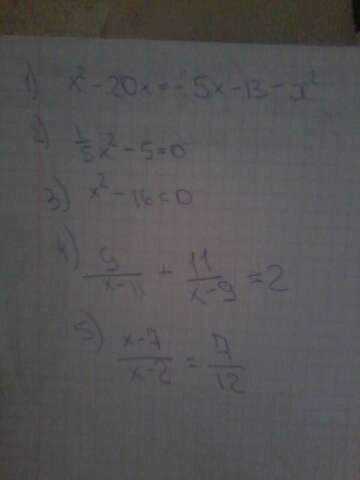 1) x² - 20x = - 5x - 13 - x²
2) 1/5 x² - 5 = 0
3) x² - 16 = 0
4) 9/(x-11) + 11/(x-9) = 2
5) (x-7)/(x-2) = 7/12